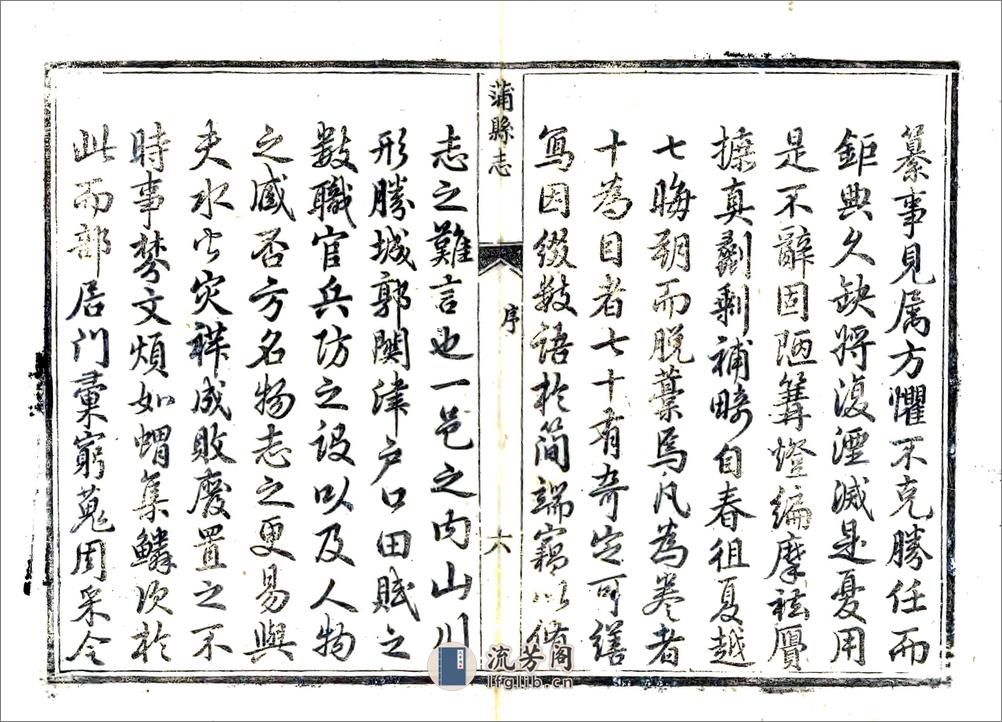 纂事見属方懼不克勝任而
鉅典久缺將復湮滅是憂用
是不辭固陋篝燈編摩祛贋
摭真劖剩補畸自春徂夏越
七晦朔而脫藁焉凡為卷者
十為目者七十有奇定可繕
寫因綴數語於簡端竊以修
蒲縣志
序
六
志之難言也一邑之内山川
形勝城郭関津户口田賦之
數職官兵防之設以及人物
之臧否方名物志之更易與
夫水旱灾祥成敗廢置之不
時事棼文煩如蝟集鱗次於
此而部居门彙窮蒐周采令
流芳阁
lfglib.cn